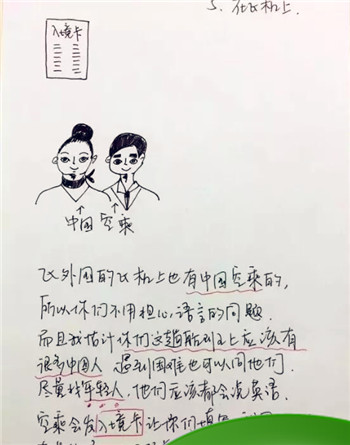 5. 在飞机上.
入境卡
中国空乘
飞外国的飞机上也有中国空乘的,
所以你们不用担心语言的问题.
而且我估计你们这趟航班上应该有
很多中国人. 遇到困难也可以问他们.
尽量找年轻人, 他们应该都会说英语.
空乘会发入境卡让你们填